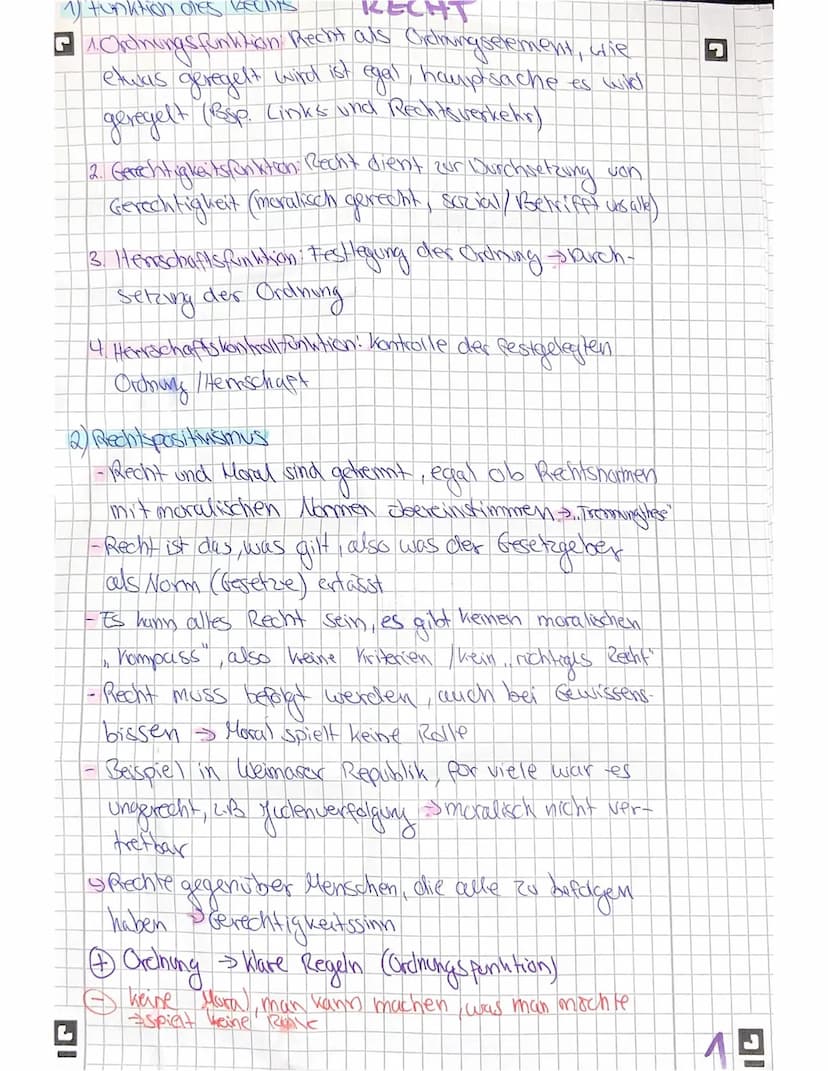 RECHT
1) Funktion des Rechts
1. Ordnungsfunktion: Recht als Ordnungselement, wie
etwas geregelt wird ist egal, hauptsache es wird
geregelt (Bsp. Links und Rechtsverkehr)
2. Gerechtigkeitsfunktion: Recht dient zur Durchsetzung von
Gerechtigkeit (moralisch gerecht, sozial/Betrifft uns alle)
3. Herrschaftsfunktion: Festlegung der Ordnung → Durch-
setzung der Ordnung
4. Herrschaftskontrollfunktion: Kontrolle der festgelegten
Ordnung / Herrschaft
2) Rechtspositivismus
- Recht und Moral sind getrennt, egal ob Rechtsnormen
mit moralischen Normen übereinstimmen → „Trennungsthese"
- Recht ist das, was gilt, also was der Gesetzgeber
als Norm (Gesetze) erfasst
- Es kann alles Recht sein, es gibt keinen moralischen
„Kompass", also keine Kriterien / kein „richtiges Recht"
- Recht muss befolgt werden, auch bei Gewissens-
bissen → Moral spielt keine Rolle
- Beispiel in Weimarer Republik, für viele war es
ungerecht, z.B Judenverfolgung → moralisch nicht ver-
tretbar
↳ Rechte gegenüber Menschen, die alle zu befolgen
haben → Gerechtigkeitssinn
+ Ordnung → klare Regeln (Ordnungsfunktion)
- keine Moral, man kann machen, was man möchte
→ spielt keine Rolle
1